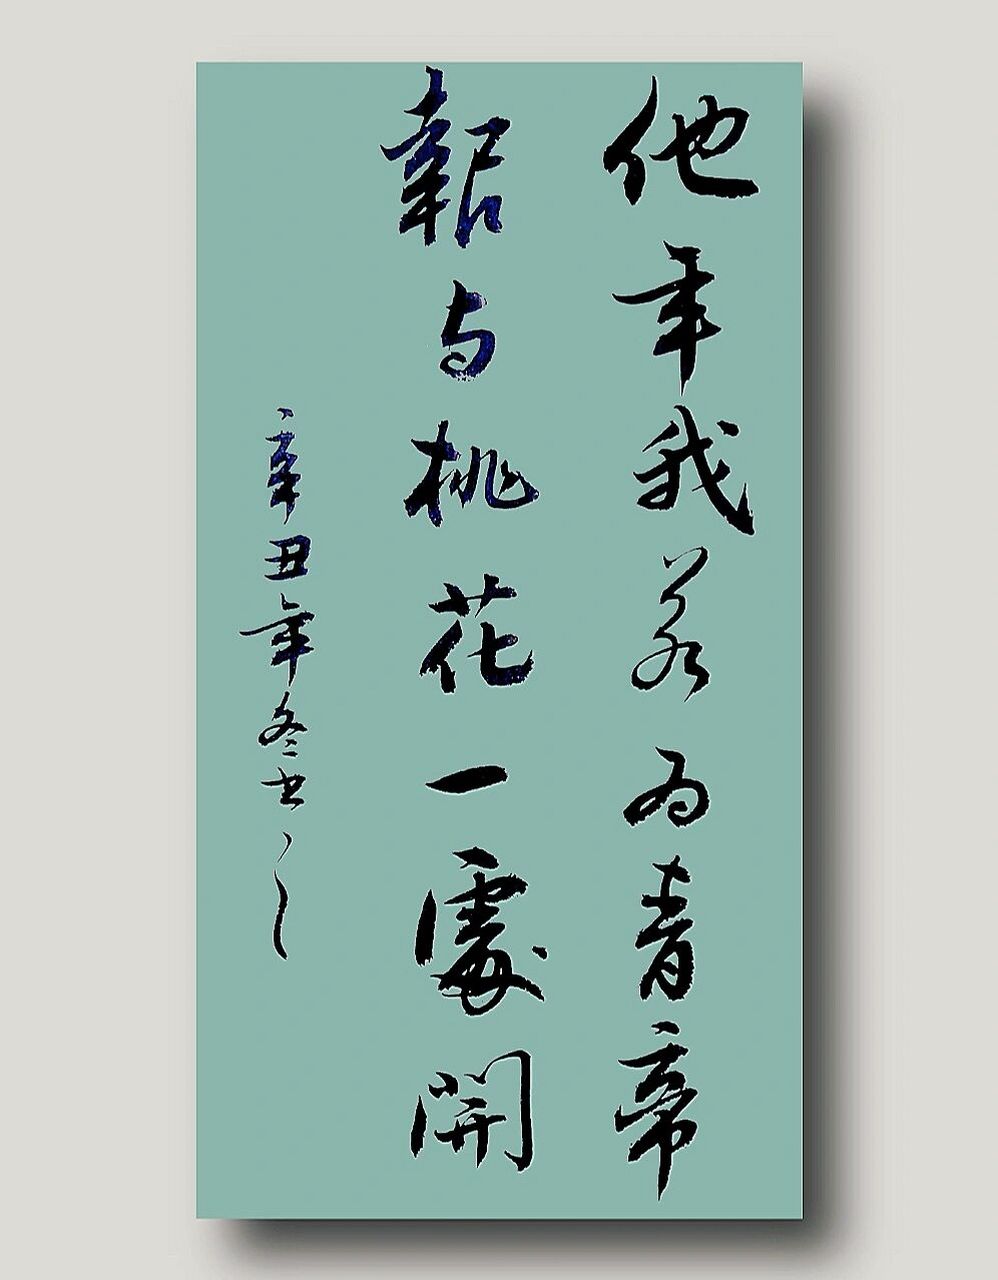 他年我若为青帝
報与桃花一處開
辛丑年冬书